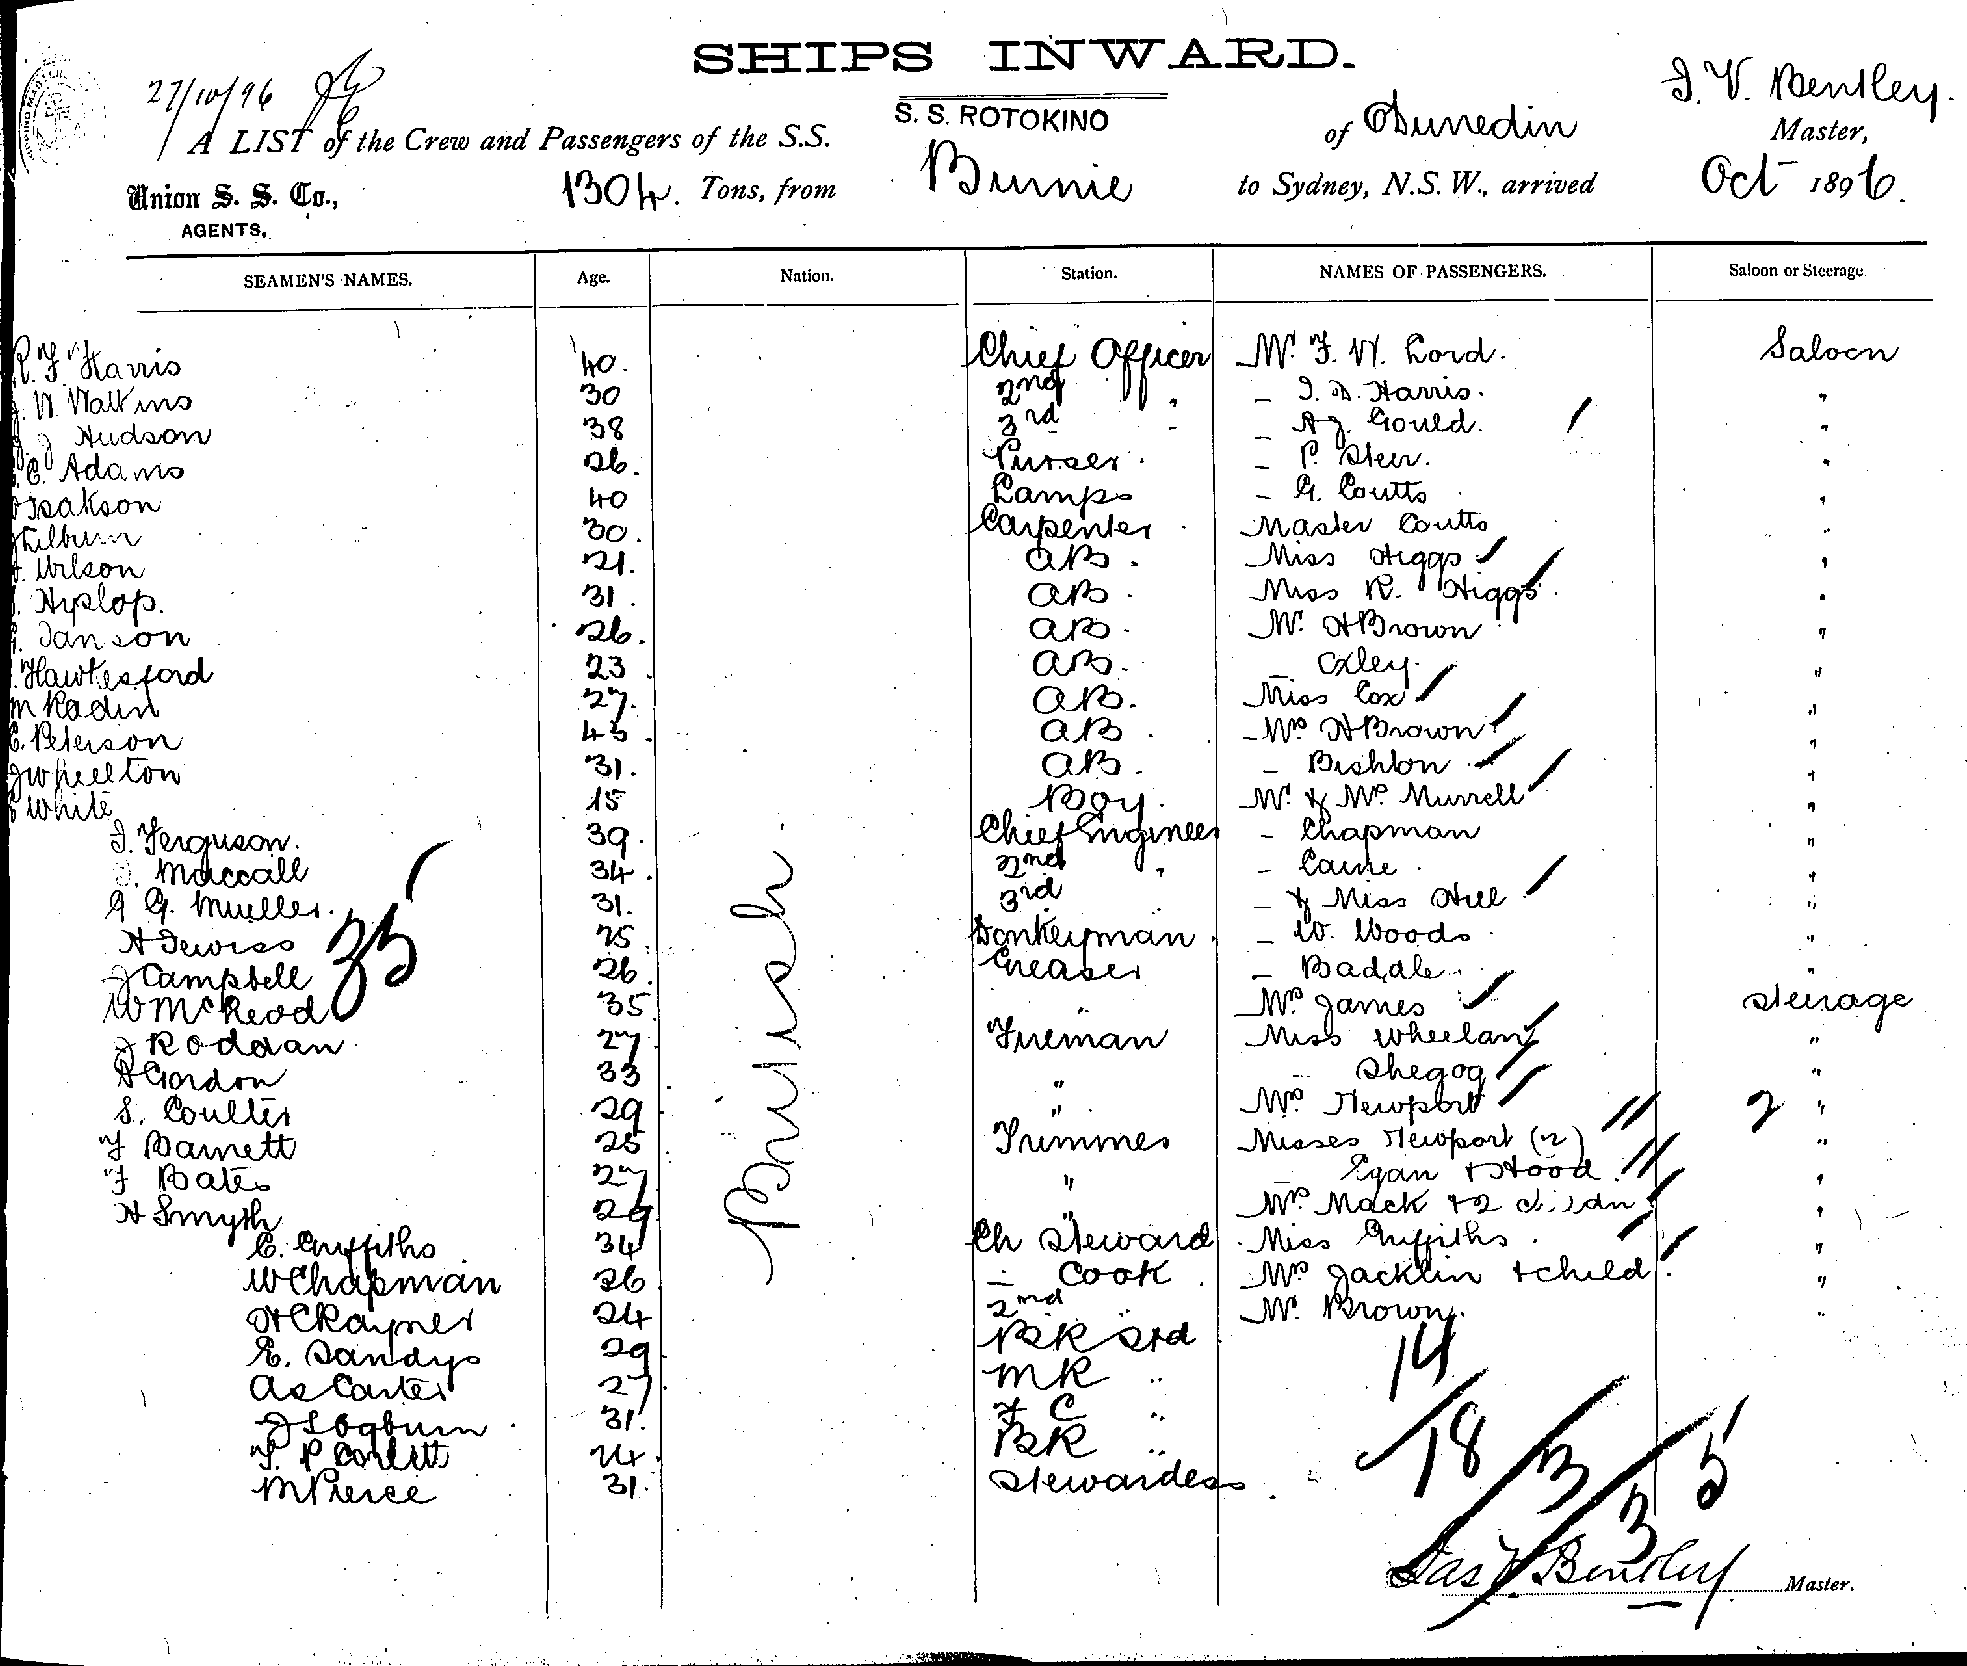 SHIPS INWARD.
27/10/96
J. V. Bentley.
A LIST of the Crew and Passengers of the S.S. S. S. ROTOKINO of Dunedin Master,
Union S. S. Co., 1304. Tons, from Burnie to Sydney, N.S.W., arrived Oct 1896.
AGENTS.
SEAMEN'S NAMES. Age. Nation. Station. NAMES OF PASSENGERS. Saloon or Steerage
R. F. Harris 40. Chief Officer Mr. F. W. Lord. Saloon
W. Watkins 30 2nd " – J. D. Harris. "
J Hudson 38 3rd " – A J. Gould. "
C. Adams 26. Purser. – P. Steer. "
Isakson 40 Lamps – G. Coutts "
Kilburn 30. Carpenter Master Coutts "
Wilson 21. AB. Miss Higgs "
Hyslop. 31. AB. Miss R. Higgs. "
Janson 26. AB. Mr. H Brown "
Hawkesford 23. AB. – Oxley. "
M Radin 27. AB. Miss Cox "
C. Peterson 43. AB. – Mrs H Brown "
J Wheelton 31. AB. – Bishton "
White 15 Boy. Mr. & Mrs. Murrell "
J. Ferguson. 39. Chief Engineer – Chapman "
Maccall 34. 2nd " – Caine. "
A G. Mueller. 31. 3rd – & Miss Hill "
H Jewiss 25. Donkeyman. – W. Woods "
J Campbell 26. Greaser – Baddle. "
35
W McLeod 35. " Mrs James Steerage
J Roddan 27. Fireman Miss Wheelan "
A Gordon 33. " – Shegog "
S. Coulter 29 " Mrs Newport 2 "
F Barnett 25 Trimmer Misses Newport (2) "
F Bates 27 " – Egan & Hood. "
H Smyth 29 " Mrs Mack & 2 "
C. Griffiths 34 Ch Steward. Miss Griffiths. "
W Chapman 26 – Cook. Mrs Jacklin & child. "
H C Rayner 24 2nd " Mr. Brown. "
E. Sandys 29 BK Std
As Carter 27. MR "
J S Ogburn 31. F C "
T. P Corlett 24. BR "
M Pierce 31. Stewardess.
14
18 / 3 / 3 5
Jas V. Bentley Master.
British